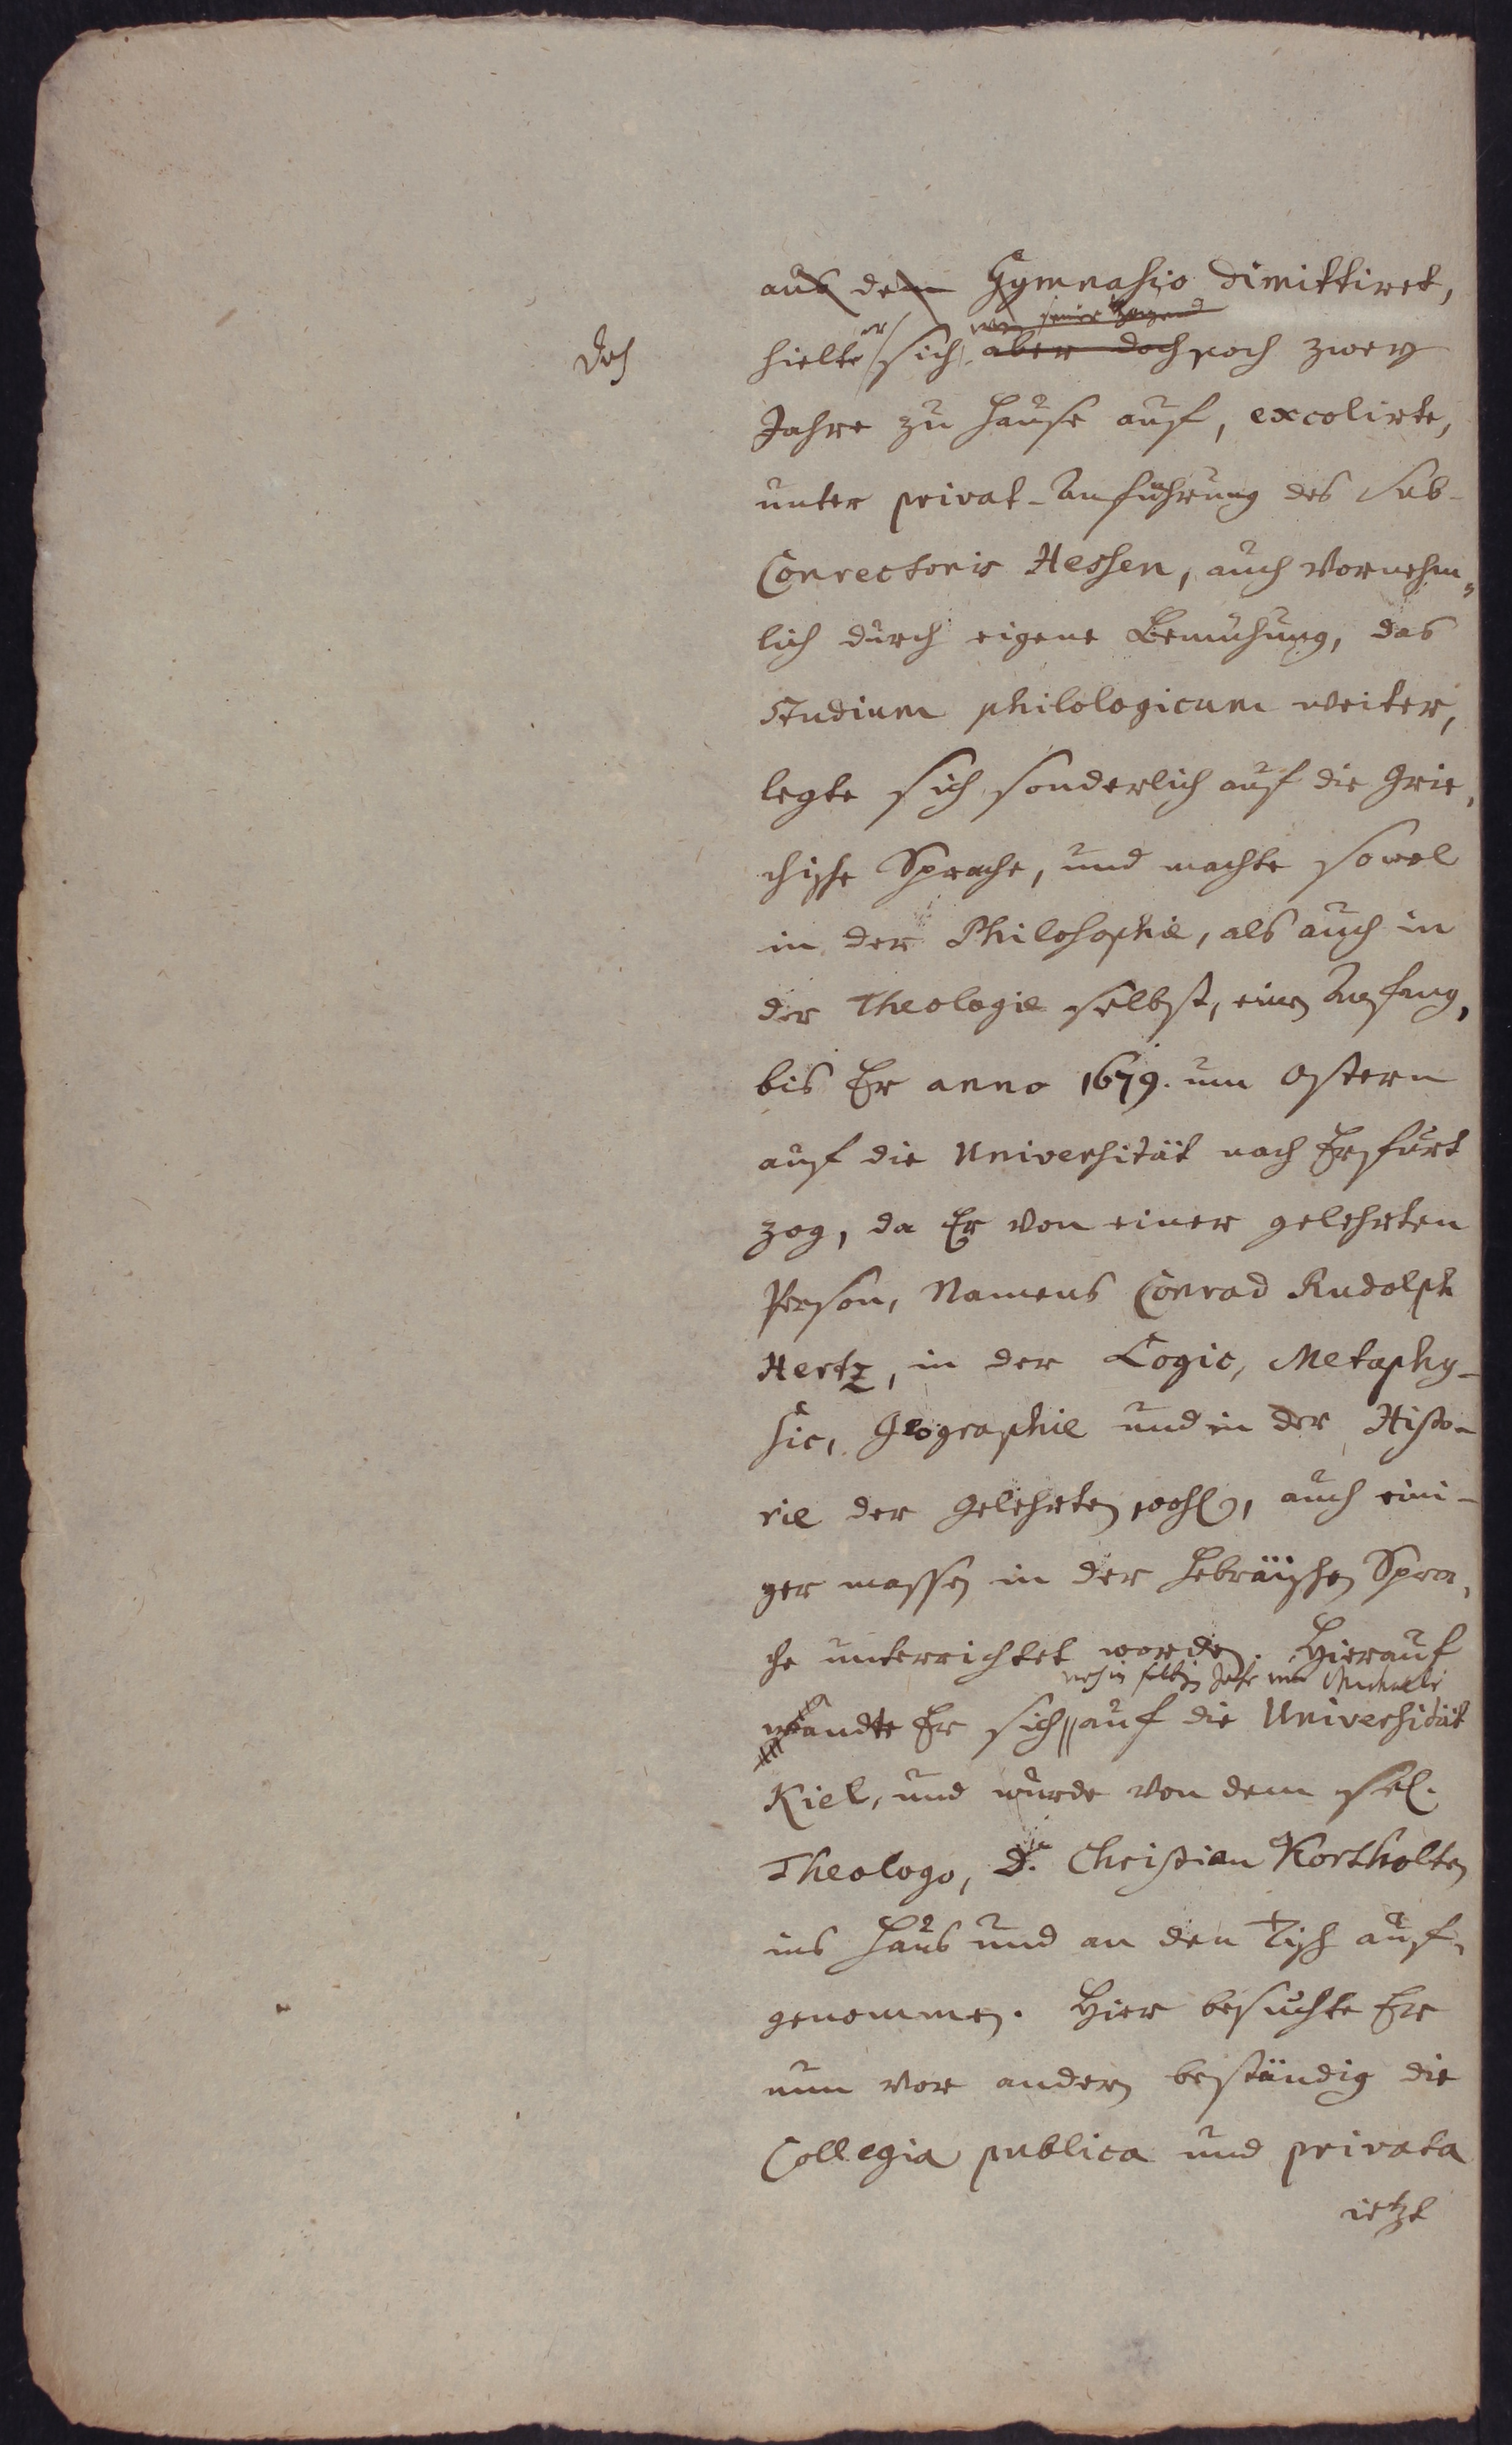 aus dem Gymnasio dimittiret,
er
seiner Jugend
Doch
hielte sich aber doch noch zwey
Jahre zu Hause auf, excolirte,
unter privat-Anführung des Sub-
Conrectoris Hessen, auch vornehm-
lich durch eigene Bemühung, das
studium philologicum weiter,
legte sich sonderlich auf die Grie-
chische Sprache, und machte sowol
in der Philosophie, als auch in
der Theologie selbst, einen Anfang,
bis Er anno 1679. um Ostern
auf die Universität nach Erfurt
zog, da Er von einer gelehrten
Person, Namens Conrad Rudolph
Hertz, in der Logic, Metaphy-
sic, Geographie und in der Histo-
rie der Gelehrten wohl, auch eini-
ger massen in der Hebräischen Spra-
che unterrichtet worden. Hierauf
noch in selbigen Jahr um Michaelis
wandte Er sich auf die Universität
Kiel, und wurde von dem sel.
Theologo, D. Christian Kortholten
ins Haus und an den Tisch auf-
genommen. Hier besuchte Er
nun vor andern beständig die
Collegia publica und privata
ietzt